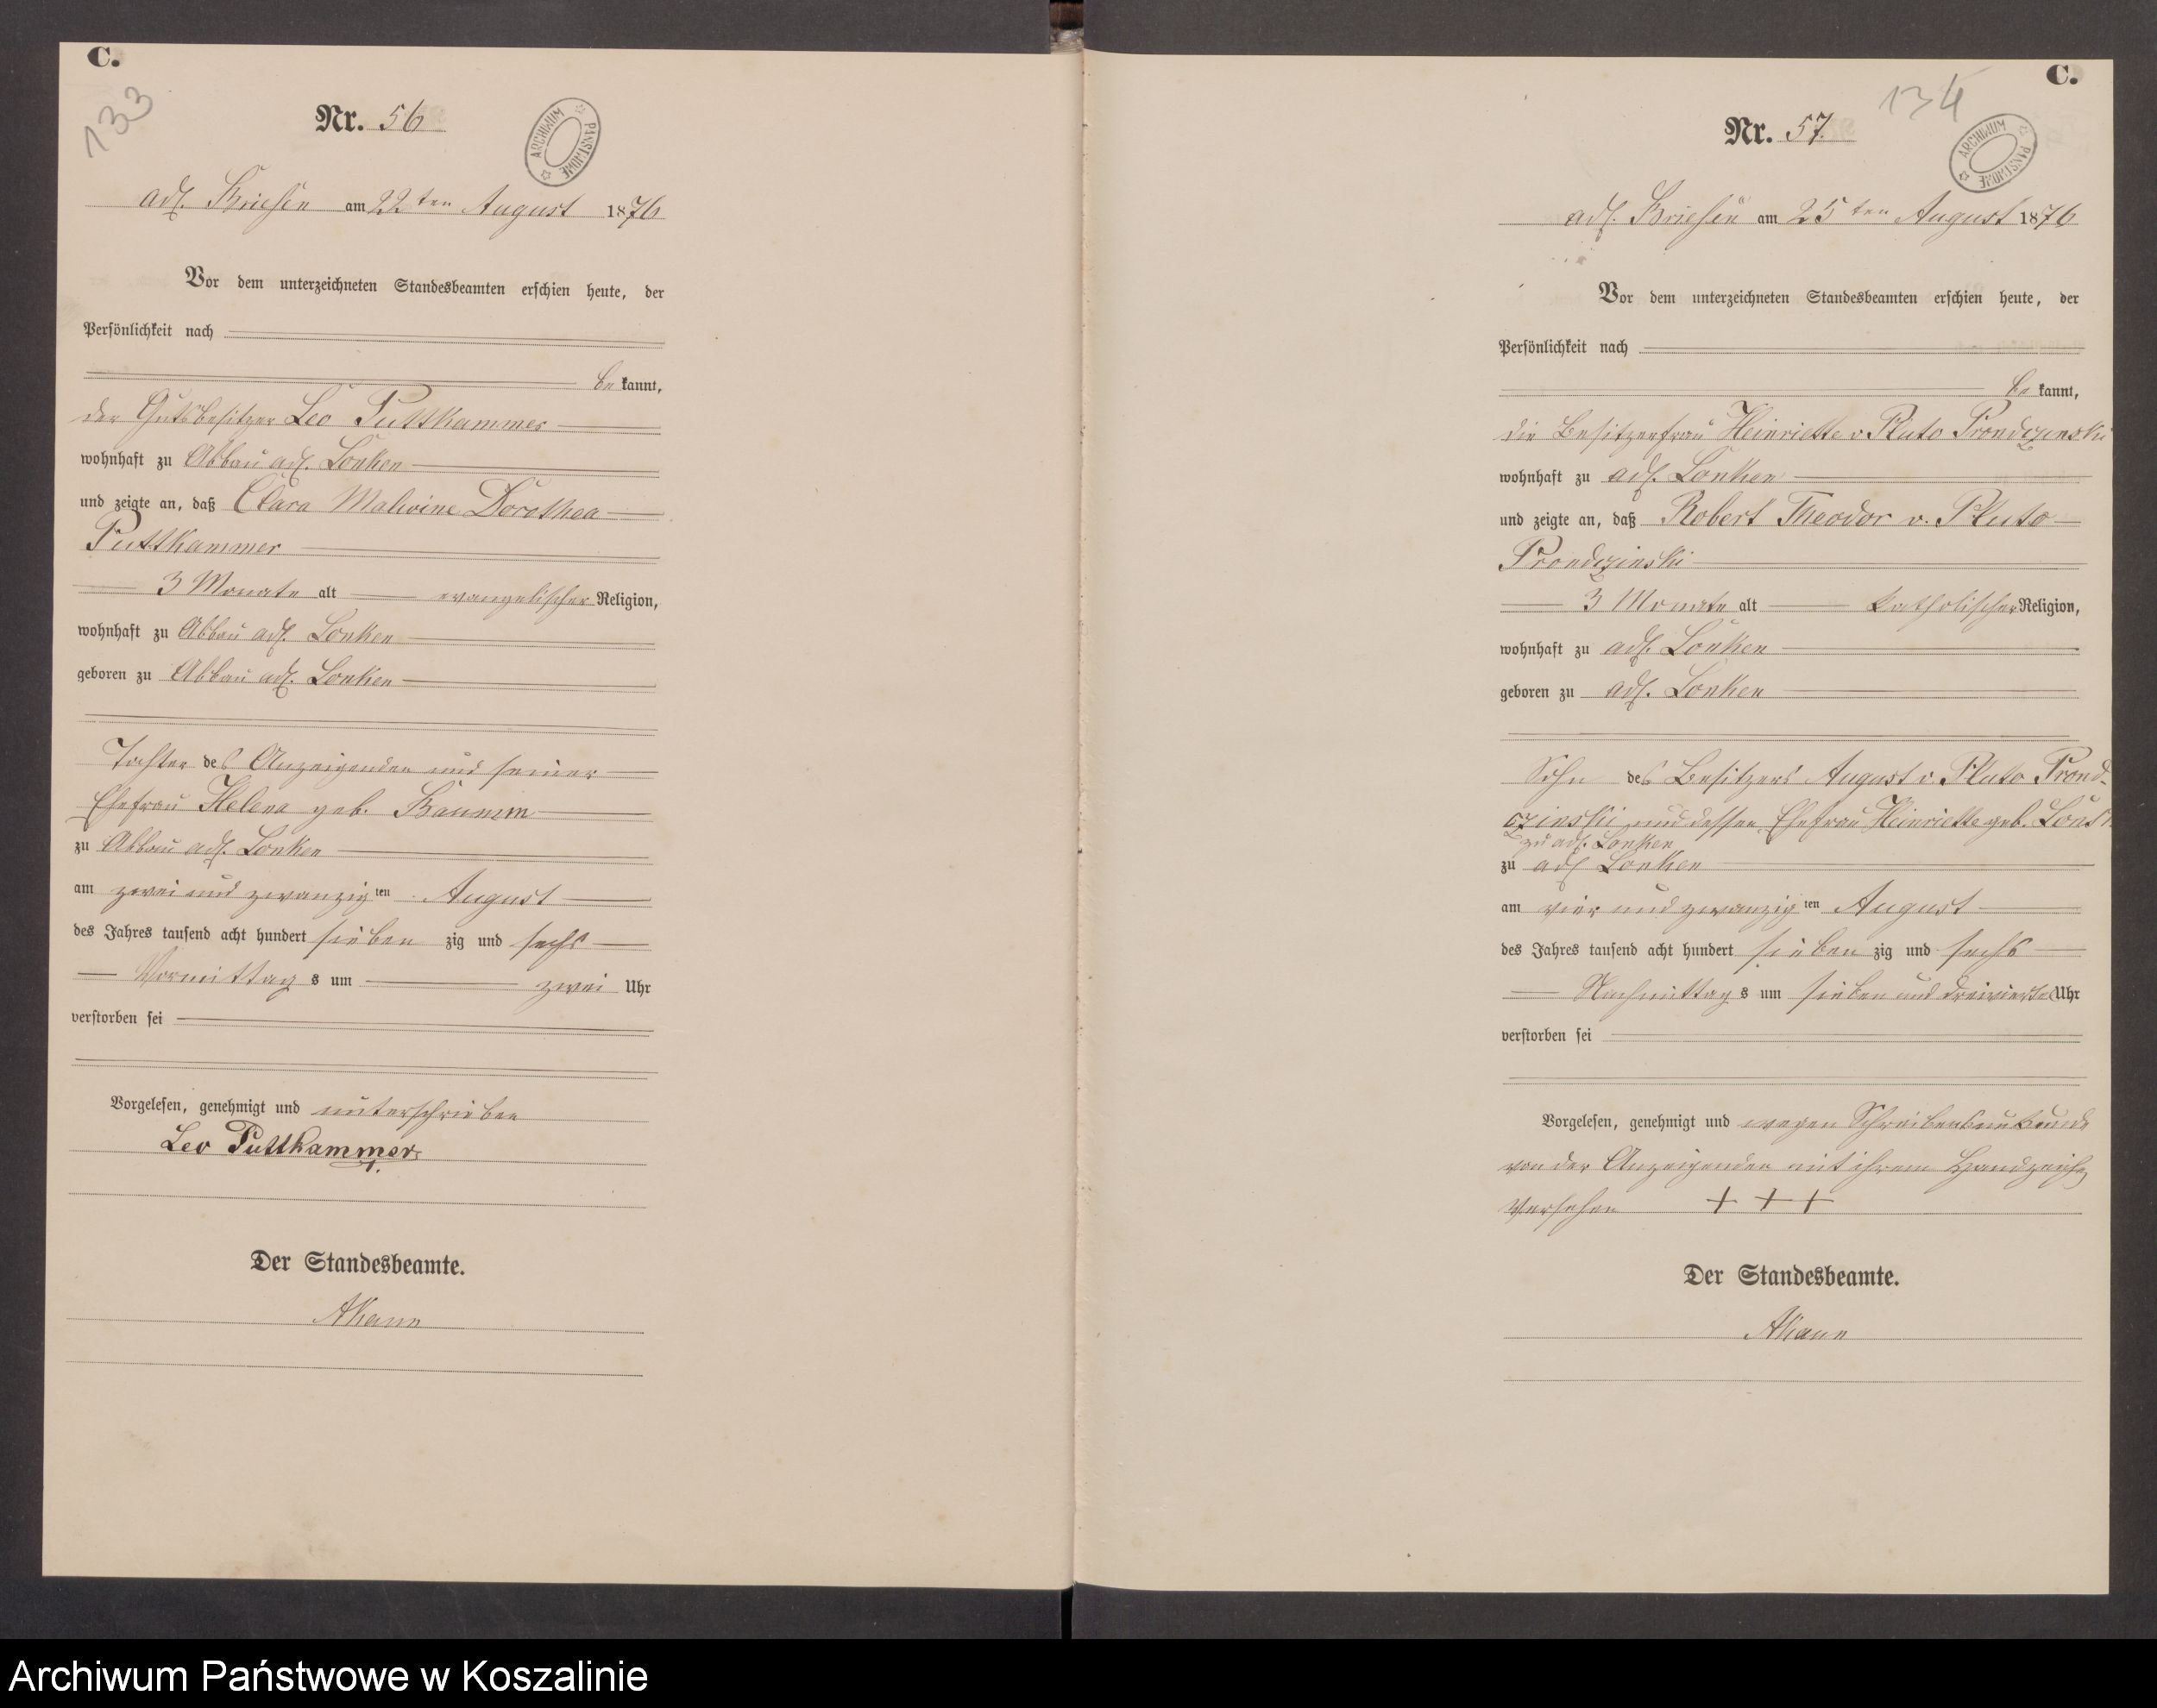 C.
133
Nr. 56
ARCHIWUM PAŃSTWOWE
adl. Briesen am 22ten August 1876
Vor dem unterzeichneten Standesbeamten erschien heute, der
Persönlichkeit nach
bekannt,
der Gutsbesitzer Leo Puttkammer
wohnhaft zu Abbau adl. Lonken
und zeigte an, daß Clara Malwine Dorothea
Puttkammer
3 Monate alt evangelischer Religion,
wohnhaft zu Abbau adl. Lonken
geboren zu Abbau adl. Lonken
Tochter des Anzeigenden und seiner
Ehefrau Helena geb. Baumm
zu Abbau adl. Lonken
am zwei und zwanzigten August
des Jahres tausend acht hundert siebenzig und sechs
Vormittags um zwei Uhr
verstorben sei
Vorgelesen, genehmigt und unterschrieben
Leo Puttkammer
Der Standesbeamte.
AKann
C.
134
Nr. 57.
ARCHIWUM PAŃSTWOWE
adl. Briesen am 25ten August 1876
Vor dem unterzeichneten Standesbeamten erschien heute, der
Persönlichkeit nach
bekannt,
die Besitzerfrau Heinriette v. Pluto Prondzynski
wohnhaft zu adl. Lonken
und zeigte an, daß Robert Theodor v. Pluto
Prondczinski
3 Monate alt katholischer Religion,
wohnhaft zu adl. Lonken
geboren zu adl. Lonken
Sohn des Besitzers August v. Pluto Prond-
czinski und dessen Ehefrau Heinriette geb.
zu adl. Lonken
zu adl Lonken
am vier und zwanzigten August
des Jahres tausend acht hundert siebenzig und sechs
Nachmittags um sieben und dreiviertel Uhr
verstorben sei
Vorgelesen, genehmigt und wegen Schreibensunkunde
von der Anzeigenden mit ihrem Handzeichen
versehen + + +
Der Standesbeamte.
AKann
Archiwum Państwowe w Koszalinie